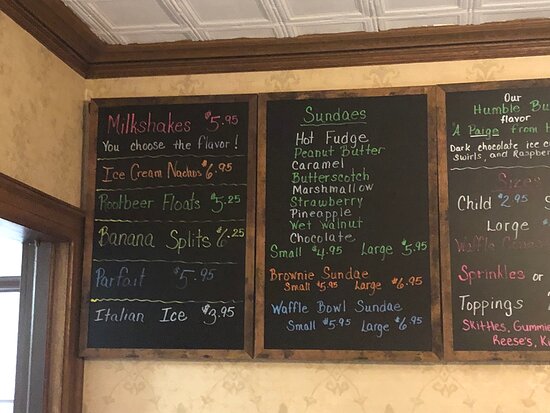 Milkshakes $5.95
You choose the flavor!
Ice Cream Nachos $6.95
Rootbeer Floats $5.25
Banana Splits $6.25
Parfait $5.95
Italian Ice $3.95
Sundaes
Hot Fudge
Peanut Butter
Caramel
Butterscotch
Marshmallow
Strawberry
Pineapple
Wet walnut
Chocolate
Small $4.95 Large $5.95
Brownie Sundae
Small $5.95 Large $6.95
Waffle Bowl Sundae
Small $5.95 Large $6.95
Our
Humble Bu
flavor
'A Paige from H
Dark chocolate ice c
Swirls, and Raspber
Sizes
Child $2.95 S
Large
Waffle
Sprinkles or
Toppings
Skittles, Gummie
Reese's, K